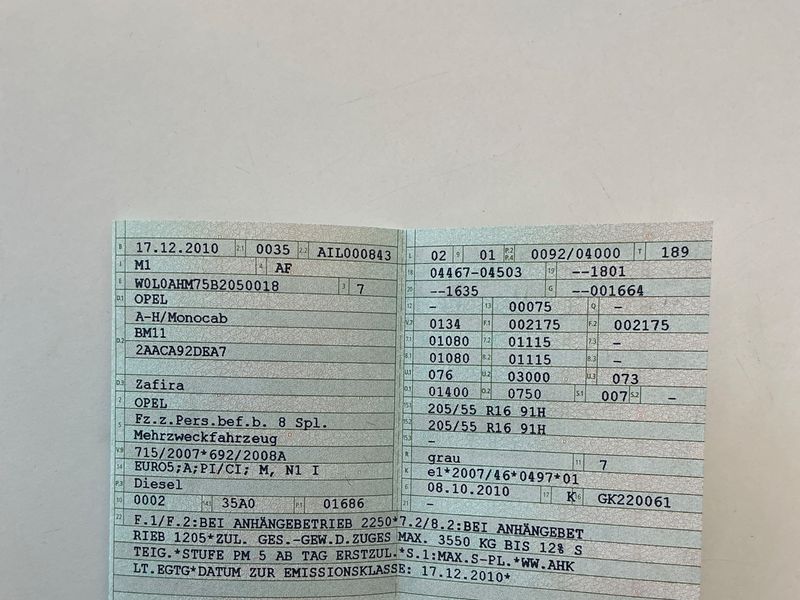 B 17.12.2010 2.1 0035 2.2 AIL000843
J M1 4 AF
E W0L0AHM75B2050018 3 7
D.1 OPEL
A-H/Monocab
D.2 BM11
2AACA92DEA7
D.3 Zafira
2 OPEL
5 Fz.z.Pers.bef.b. 8 Spl.
Mehrzweckfahrzeug
V.9 715/2007*692/2008A
14 EURO5;A;PI/CI; M, N1 I
P.3 Diesel
10 0002 14.1 35A0 P.1 01686
L 02 9 01 P.2 P.4 0092/04000 T 189
18 04467-04503 19 --1801
20 --1635 G --001664
12 - 13 00075 Q -
V.7 0134 F.1 002175 F.2 002175
7.1 01080 7.2 01115 7.3 -
8.1 01080 8.2 01115 8.3 -
U.1 076 U.2 03000 U.3 073
O.1 01400 O.2 0750 S.1 007 S.2 -
15.1 205/55 R16 91H
15.2 205/55 R16 91H
15.3 -
R grau 11 7
K e1*2007/46*0497*01
6 08.10.2010 17 K 16 GK220061
-
22 F.1/F.2:BEI ANHÄNGEBETRIEB 2250*7.2/8.2:BEI ANHÄNGEBET
RIEB 1205*ZUL. GES.-GEW.D.ZUGES MAX. 3550 KG BIS 12% S
TEIG.*STUFE PM 5 AB TAG ERSTZUL.*S.1:MAX.S-PL.*WW.AHK
LT.EGTG*DATUM ZUR EMISSIONSKLASSE: 17.12.2010*